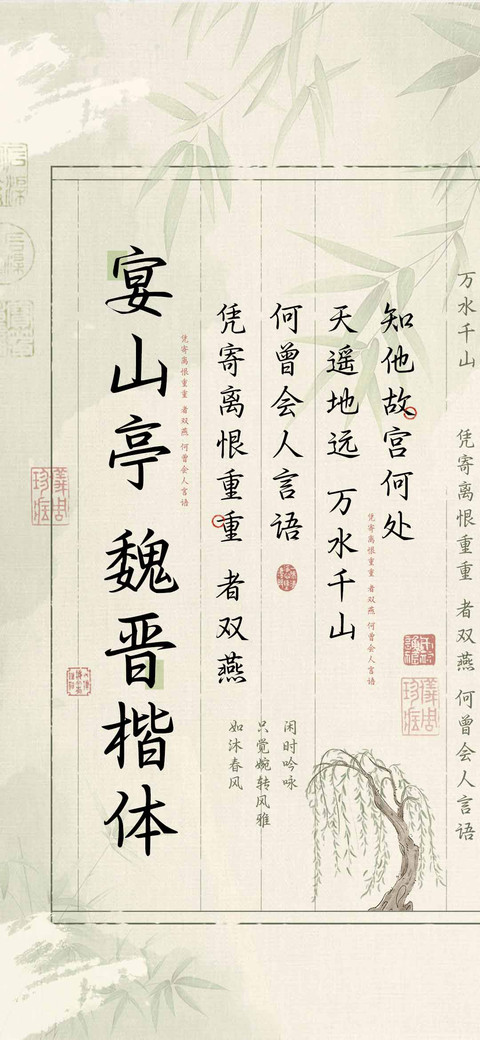 宴山亭 魏晋楷体
凭寄离恨重重 者双燕 何曾会人言语
凭寄离恨重重 者双燕
何曾会人言语
天遥地远 万水千山
凭寄离恨重重 者双燕 何曾会人言语
知他故宫何处
闲时吟咏
只觉婉转风雅
如沐春风
万水千山 凭寄离恨重重 者双燕 何曾会人言语